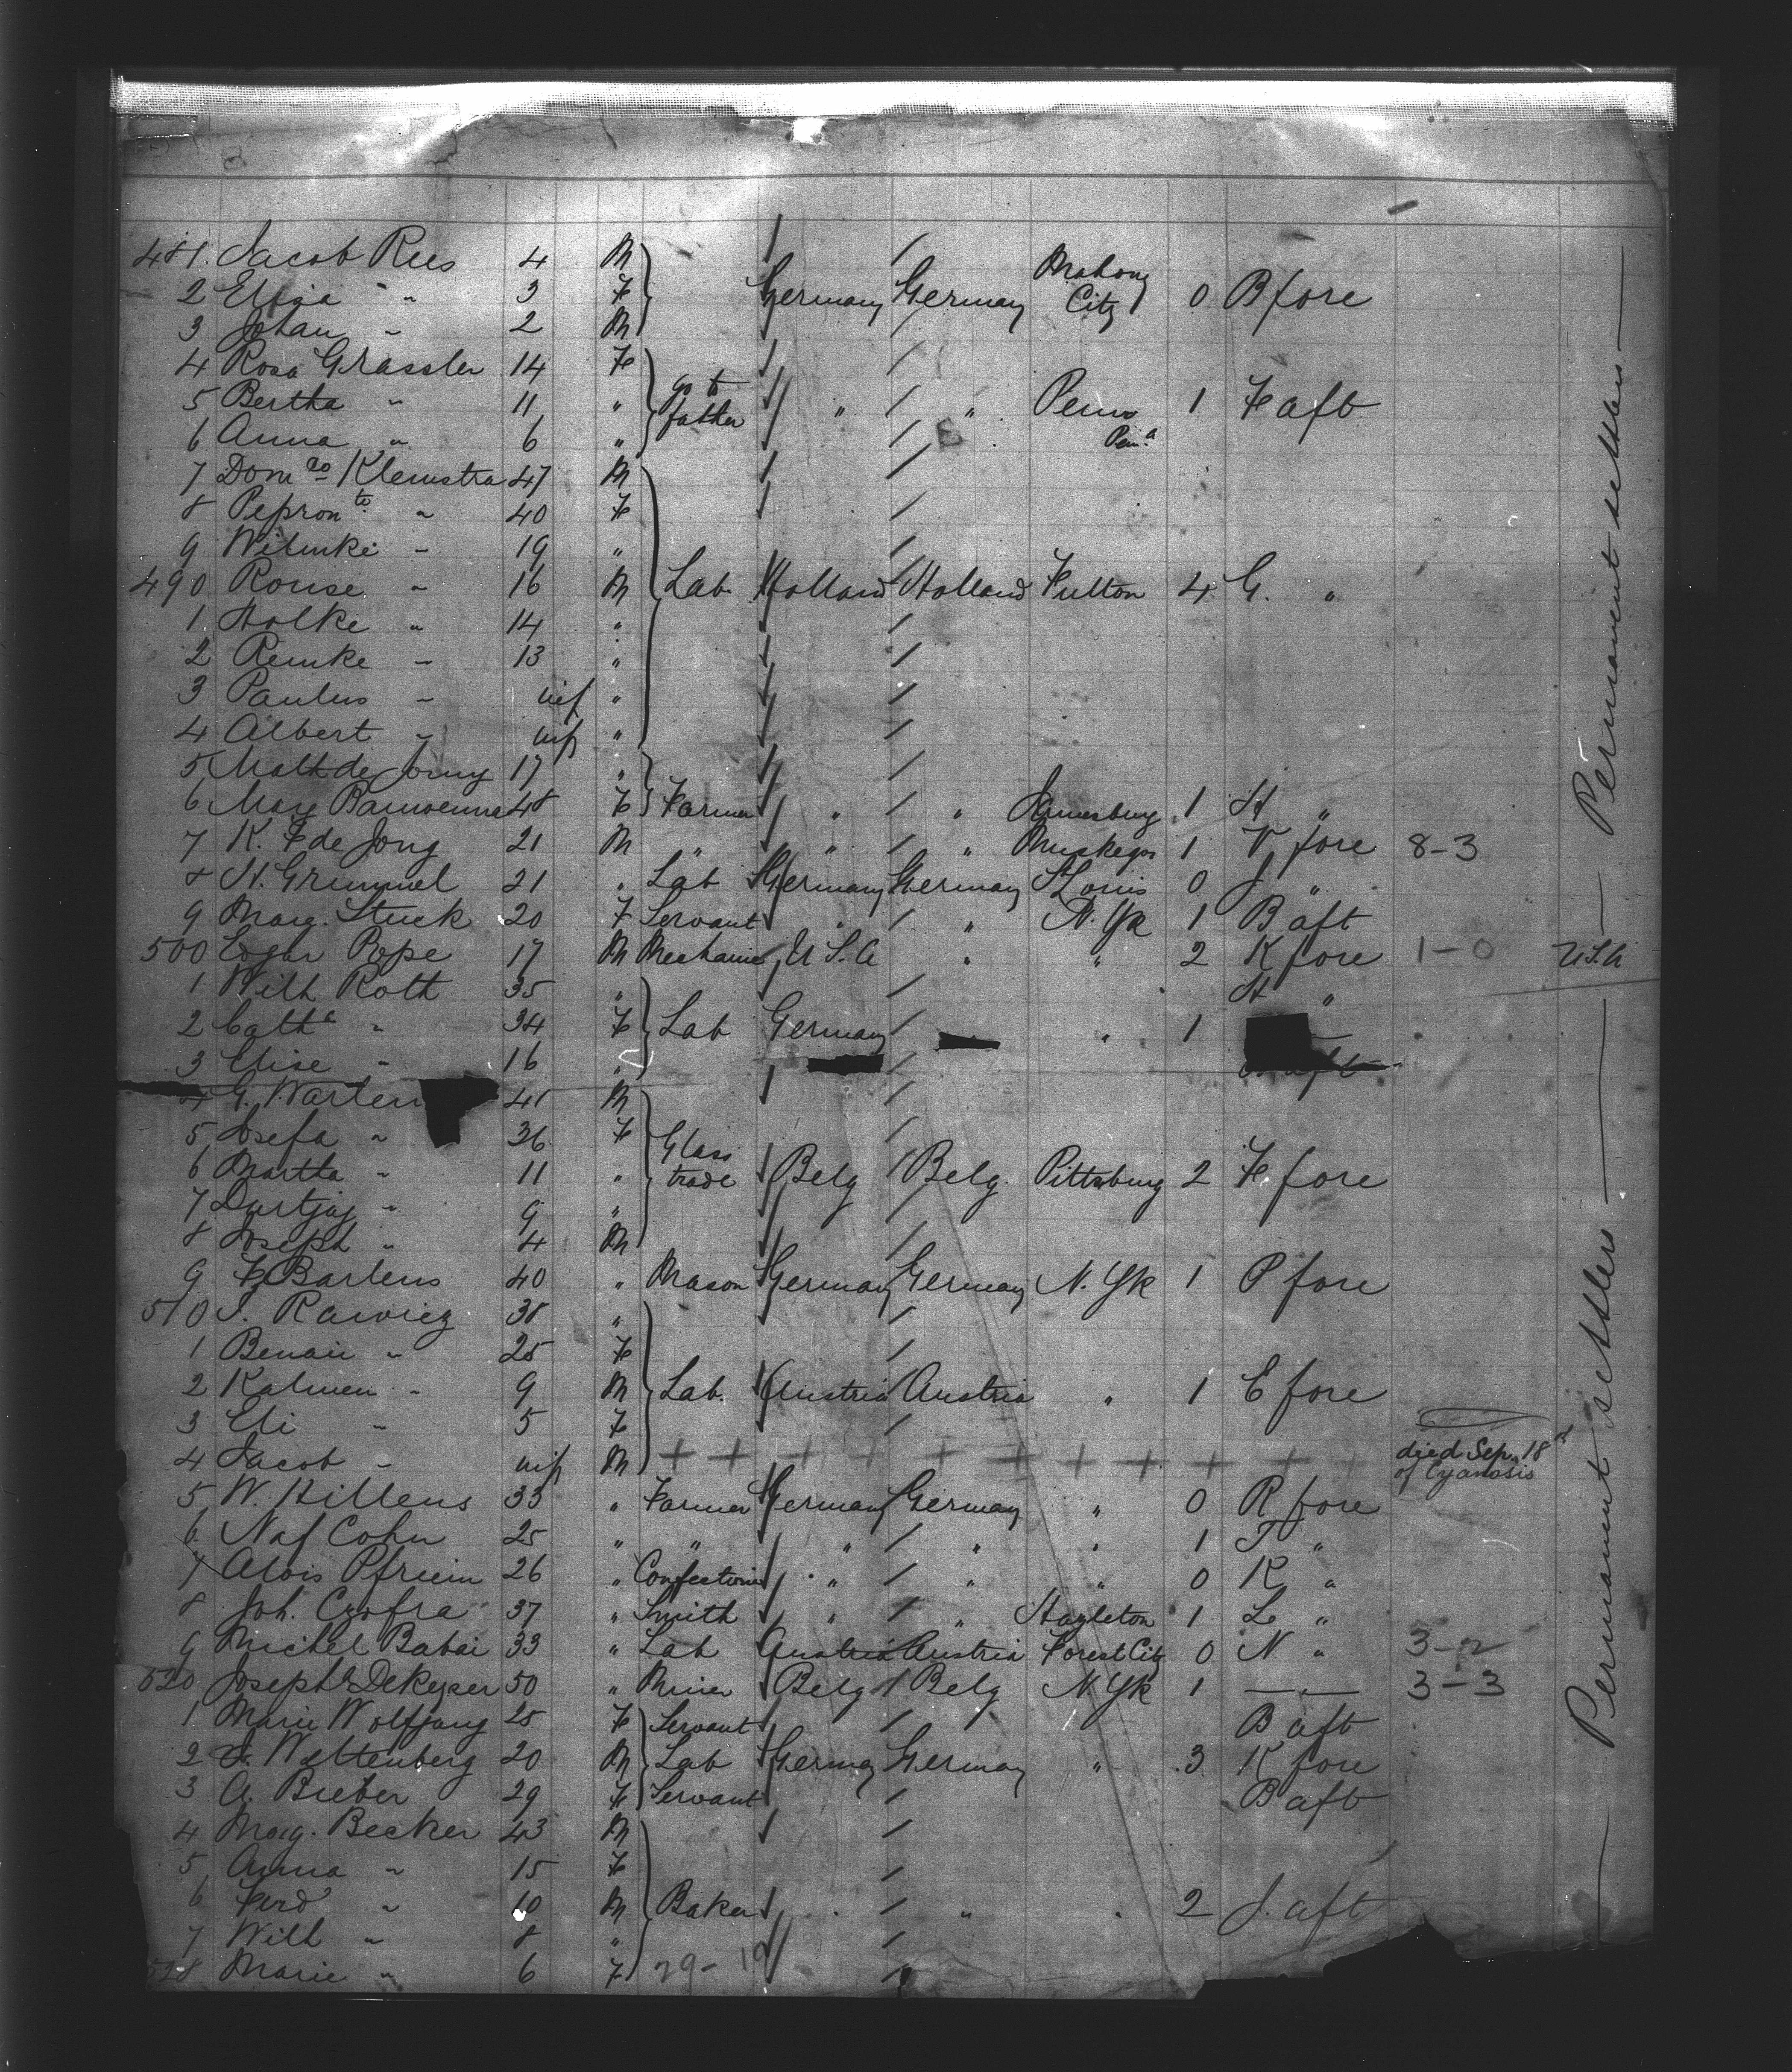 481. Jacob Rees 4 M
2 Elsie " 3 F Germany Germany Mahony City 0 B fore
3 Johan " 2 M
4 Rosa Grassler 14 F
5 Bertha " 11 " go to father " " Penns Pena 1 F aft
6 Anna " 6 "
7 Domco Klemstra 47 M
8 " 40 F
9 Wilmke " 19 "
490 Rouse " 16 M Lab. Holland Holland Fulton 4 G. "
1 Holke " 14 "
2 Remke " 13 "
3 Paulus " inf "
4 Albert " inf "
5 de Jong 17 "
6 48 F Farmer " " Jamesburg 1 H "
7 K. F de Jong 21 M " " " Muskegon 1 V fore 8-3
8 H. Grimmel 21 " Lab Germany Germany St Louis 0 J "
9 Marg. Stuck 20 F Servant " " N. Yk 1 B aft
500 Edgar Pope 17 M Mechanic U.S.A " " 2 K fore 1-0 U.S.A
1 Wilh Roth 35 " H "
2 Cathe " 34 F Lab Germany " 1
3 Elise " 16 " aft
4 G. Warten 41 M
5 Josefa " 36 F
6 Martha " 11 " Glass trade Belg Belg. Pittsburg 2 F. fore
7 " 9 "
8 Joseph " 4 M
9 F. Bartens 40 " Mason Germany Germany N. Yk 1 P fore
510 I. Rawicz 38 "
1 " 25 F
2 Kalmen " 9 M Lab. Austria Austria " 1 E fore
3 Eli " 5 F
4 Jacob " inf M + + + + + + + + + + died Sep. 18th of Cyanosis
5 W. Hillens 33 " Farmer Germany Germany " 0 R fore
6 Naf Cohn 25 " " " " " 1 T "
7 Alois Pfriem 26 " Confectioner " " " 0 K "
8 Joh. 37 " Smith " " Hazleton 1 L "
9 Michel Babai 33 " Lab Austria Austria Forest City 0 N " 3-2
520 Joseph DeKeyser 50 " Miner Belg Belg N Yk 1 — " — 3-3
1 Marie Wolfgang 25 F Servant B aft
2 Wettenberg 20 M Lab Germany Germany " 3 K fore
3 A. Bieber 29 F Servant B aft
4 Marg. Becker 43 M
5 Anna " 15 F
6 Ferd " 10 M Baker " " " 2 J. aft
7 Wilh " 8 "
528 Marie " 6 F 29-19
— Permanent settlers — Permanent settlers —